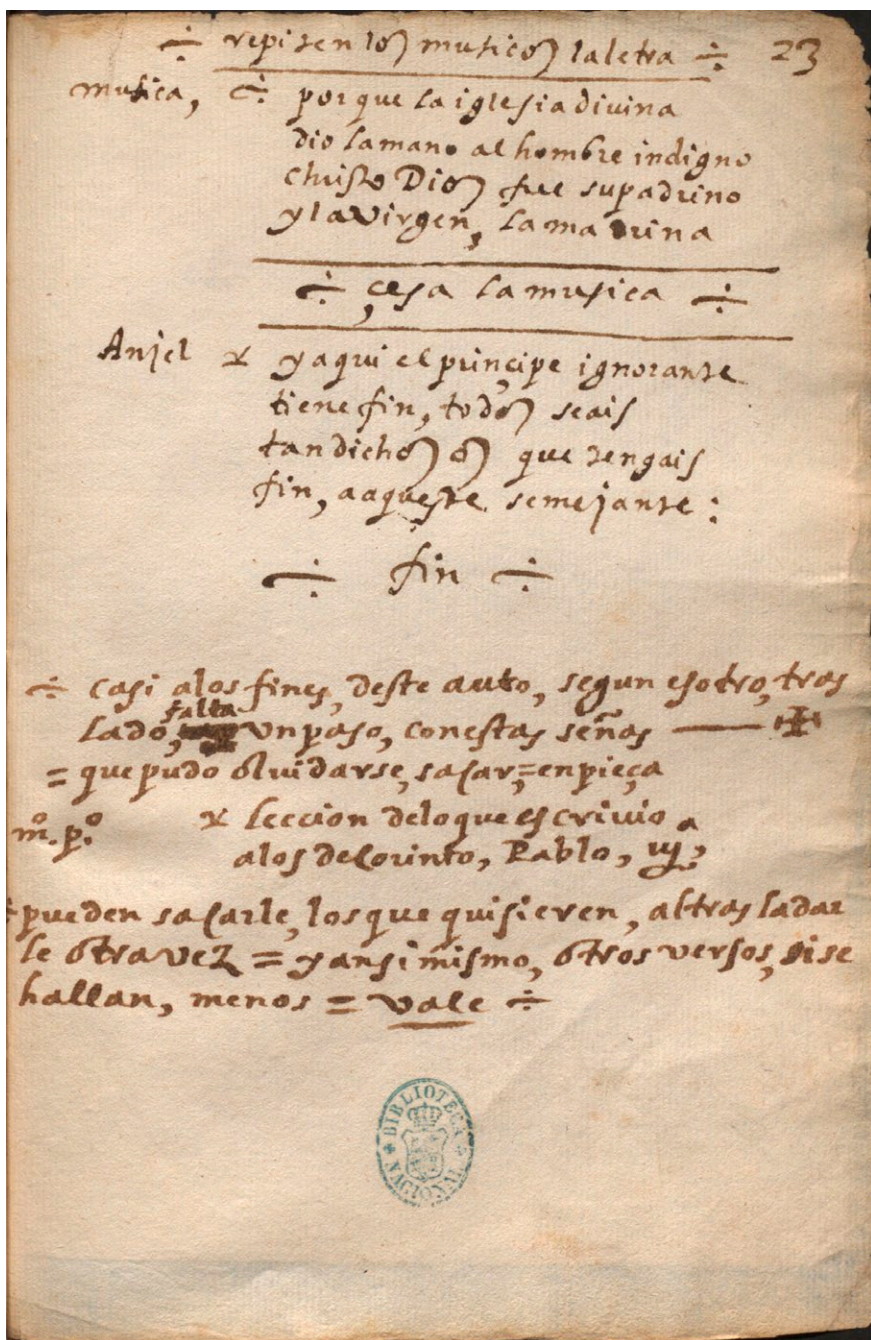 ÷ repiten los musicos la letra ÷ 23
musica, ÷ porque la iglesia divina
dio la mano al hombre indigno
christo Dios fue su padrino
y la virgen, la madrina
÷ çesa la musica ÷
Anjel y aqui el prinçipe ignorante
tiene fin, todos seais
tan dichosos que tengais
fin, a aqueste semejante:
÷ fin ÷
÷ casi a los fines, deste auto, segun esotro, tras
lado, falta un paso, con estas señas
= que pudo olvidarse, sacar, = enpieça
m.º p.º leccion de lo que escrivio
a los de Corinto, Pablo,
÷ pueden sacarle, los que quisieren, al trasladar
le otra vez = y ansimismo, otros versos, si se
hallan, menos = vale ÷
BIBLIOTECA NACIONAL